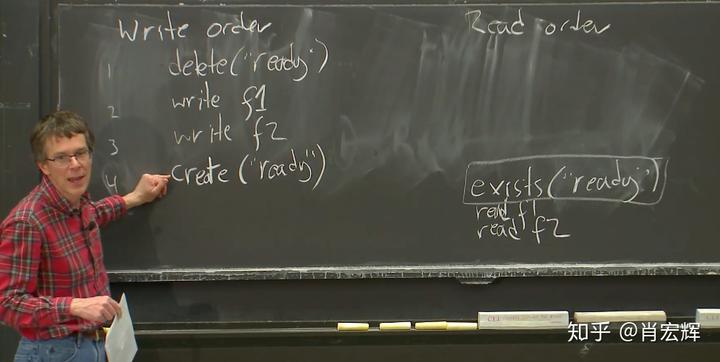 Write order
1 delete("ready")
2 write f1
3 write f2
4 create ("ready")
Read order
exists("ready")
read f1
read f2
知乎 @肖宏辉